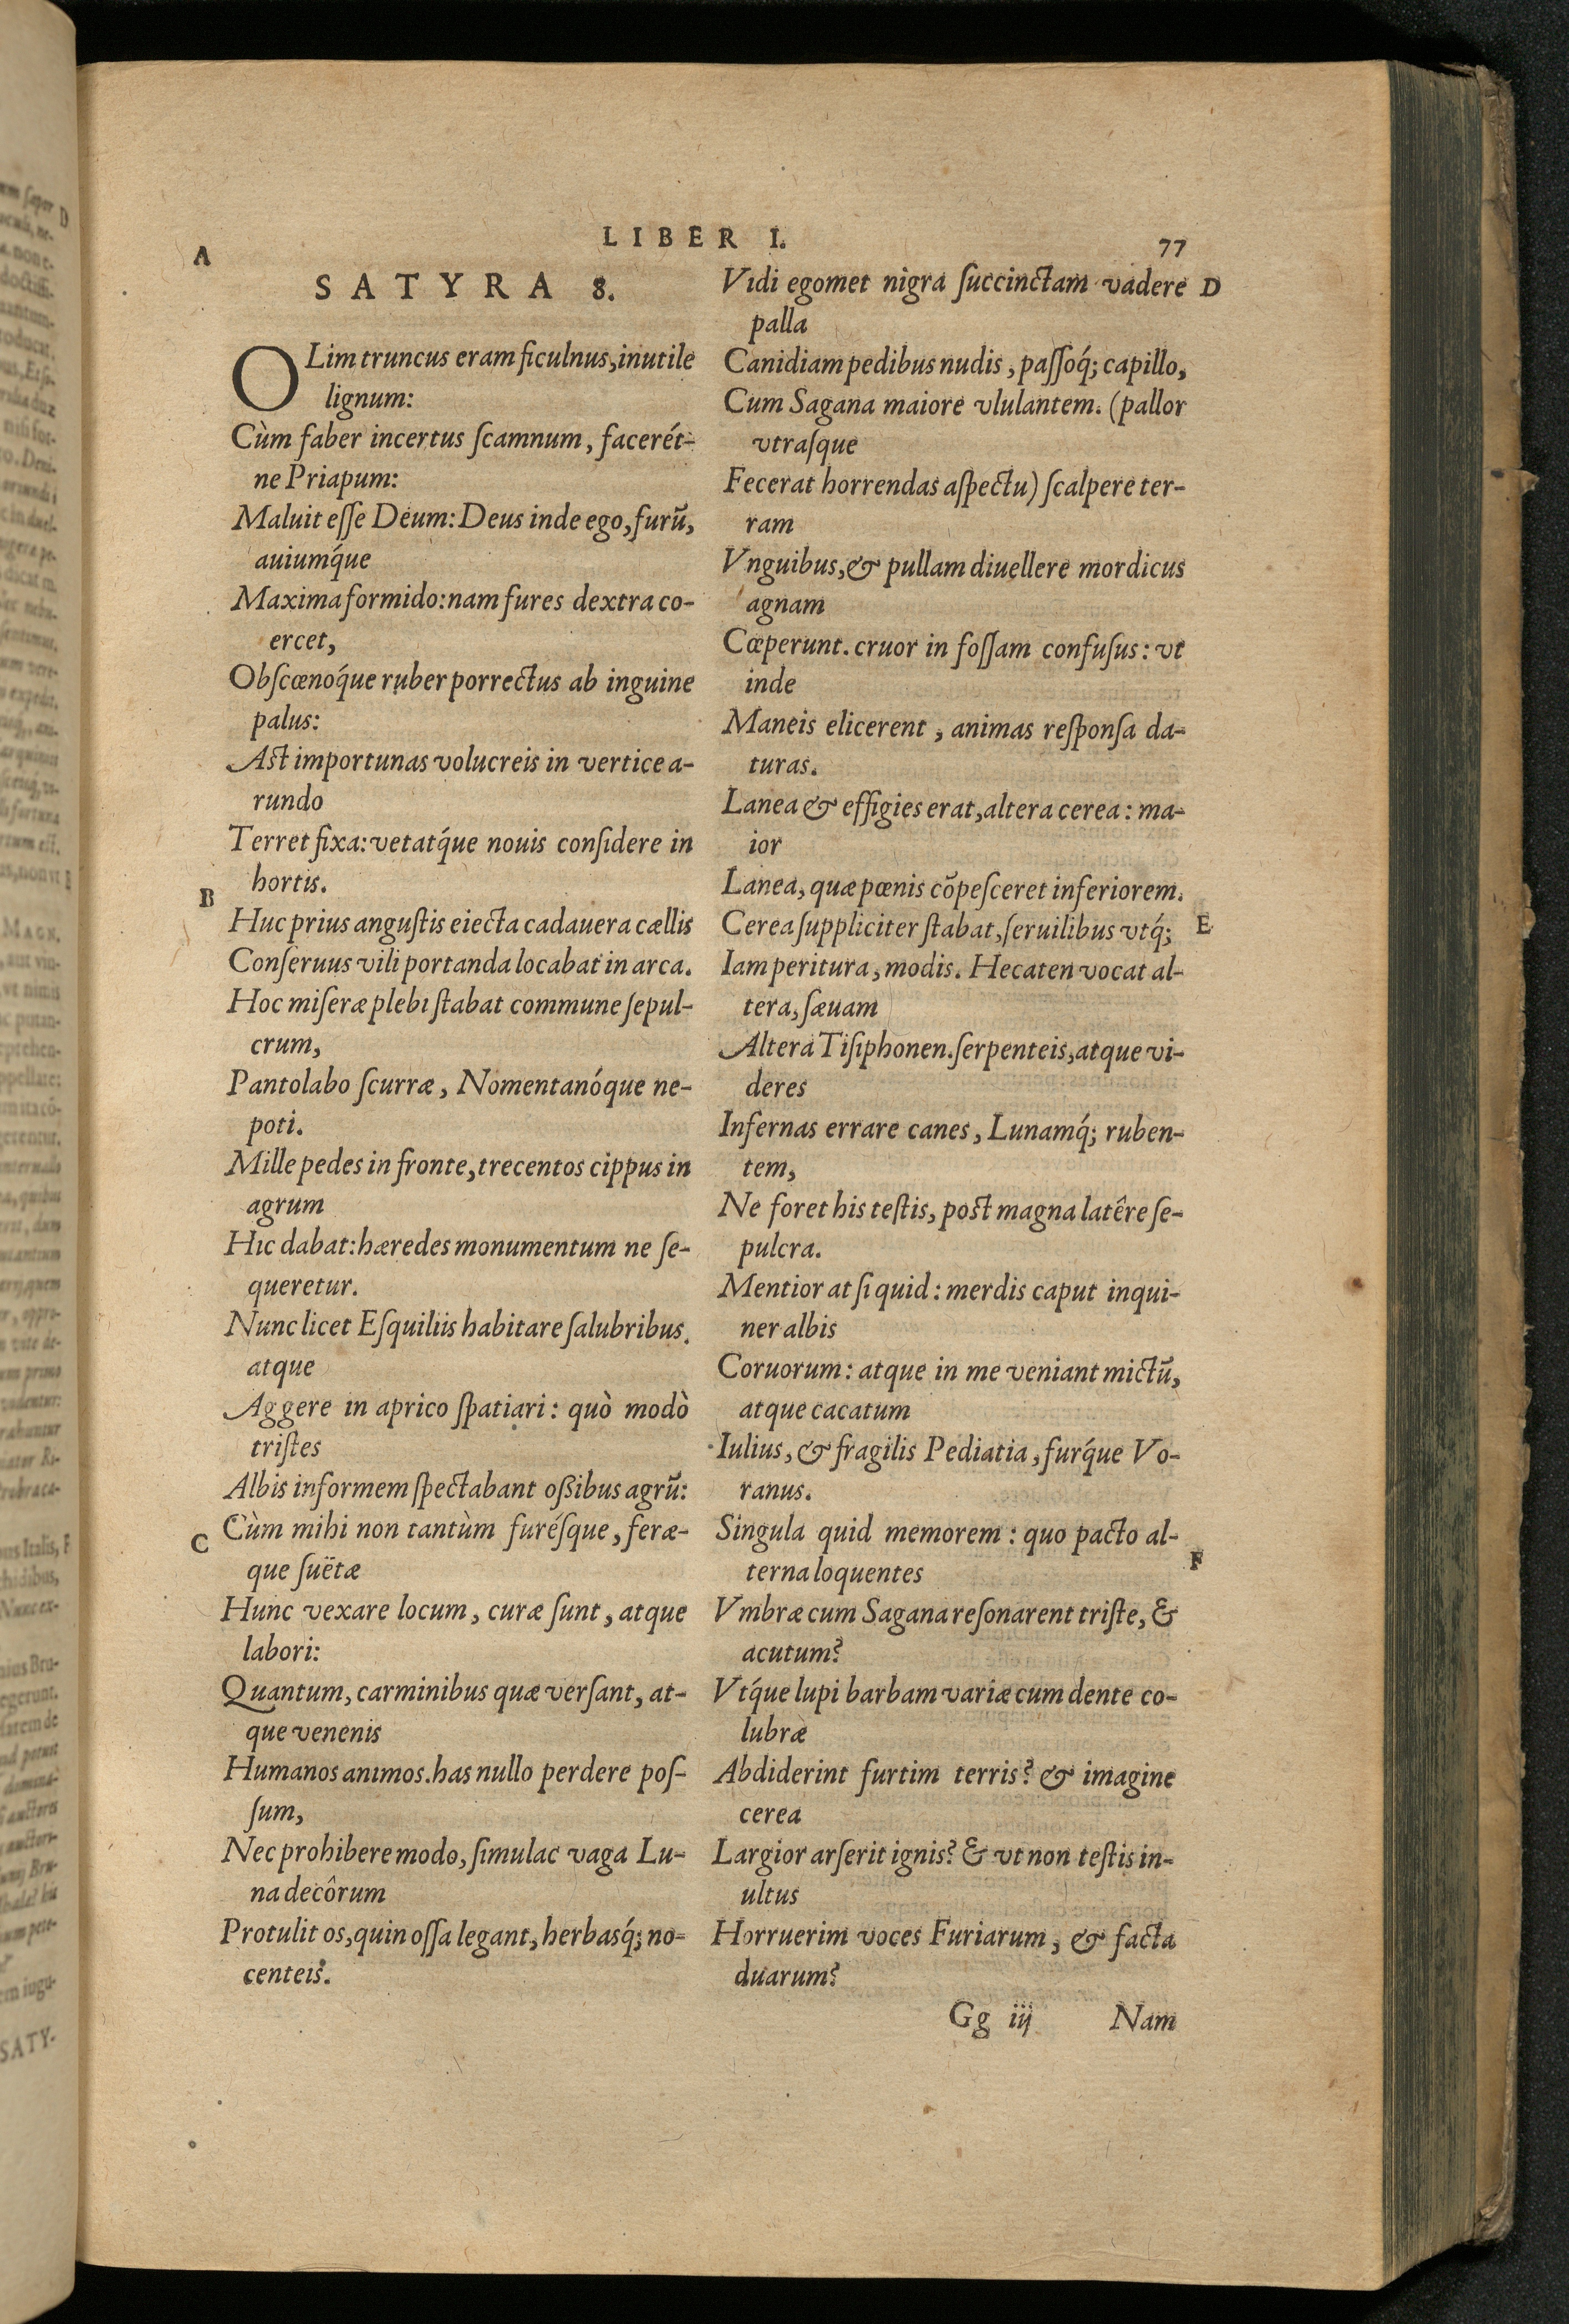 LIBER I.
77
A
SATYRA 8.
OLim truncus eram ficulnus, inutile
lignum:
Cùm faber incertus ſcamnum, facerét-
ne Priapum:
Maluit eſſe Deum: Deus inde ego, furū,
auiumq́ue
Maxima formido: nam fures dextra co-
ercet,
Obſcœnoq́ue ruber porrectus ab inguine
palus:
Ast importunas volucreis in vertice a-
rundo
Terret fixa: vetatq́ue nouis conſidere in
hortis.
B
Huc prius anguſtis eiecta cadauera cællis
Conſeruus vili portanda locabat in arca.
Hoc miſeræ plebi ſtabat commune ſepul-
crum,
Pantolabo ſcurræ, Nomentanóque ne-
poti.
Mille pedes in fronte, trecentos cippus in
agrum
Hic dabat: hæredes monumentum ne ſe-
queretur.
Nunc licet Eſquiliis habitare ſalubribus.
atque
Aggere in aprico ſpatiari: quò modò
triſtes
Albis informem ſpectabant oßibus agrū:
C
Cùm mihi non tantùm furéſque, feræ-
que ſuëtæ
Hunc vexare locum, curæ ſunt, atque
labori:
Quantum, carminibus quæ verſant, at-
que venenis
Humanos animos. has nullo perdere poſ-
ſum,
Nec prohibere modo, ſimulac vaga Lu-
na decôrum
Protulit os, quin oſſa legant, herbasq́; no-
centeis.
Vidi egomet nigra ſuccinctam vadere
D
palla
Canidiam pedibus nudis, paſſoq́; capillo,
Cum Sagana maiore vlulantem. (pallor
vtraſque
Fecerat horrendas aſpectu) ſcalpere ter-
ram
Vnguibus, & pullam diuellere mordicus
agnam
Cœperunt. cruor in foſſam confuſus: vt
inde
Maneis elicerent, animas reſponſa da-
turas.
Lanea & effigies erat, altera cerea: ma-
ior
Lanea, quæ pœnis cōpeſceret inferiorem.
Cerea ſuppliciter ſtabat, ſeruilibus vtq́;
E
Iam peritura, modis. Hecaten vocat al-
tera, ſæuam
Altera Tiſiphonen. ſerpenteis, atque vi-
deres
Infernas errare canes, Lunamq́; ruben-
tem,
Ne foret his teſtis, post magna latêre ſe-
pulcra.
Mentior at ſi quid: merdis caput inqui-
ner albis
Coruorum: atque in me veniant mictū,
atque cacatum
Iulius, & fragilis Pediatia, furq́ue Vo-
ranus.
Singula quid memorem: quo pacto al-
terna loquentes
F
Vmbræ cum Sagana reſonarent triſte, &
acutum?
Vtq́ue lupi barbam variæ cum dente co-
lubræ
Abdiderint furtim terris? & imagine
cerea
Largior arſerit ignis? & vt non teſtis in-
ultus
Horruerim voces Furiarum, & facta
duarum?
Gg iij
Nam